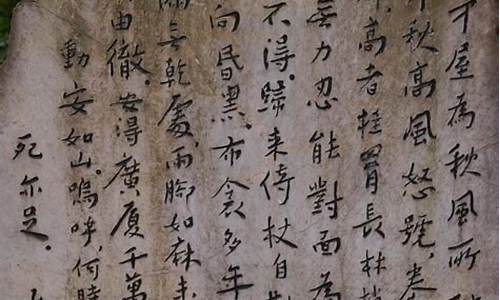 屋為秋風所
秋高風怒號,卷
高者挂罥長林
無力忍能對面為
不得.歸來倚杖自
向昏黑.布衾多年
漏無乾處,雨脚如麻未
由徹.安得廣厦千萬
動安如山.嗚呼,何時
死亦足.